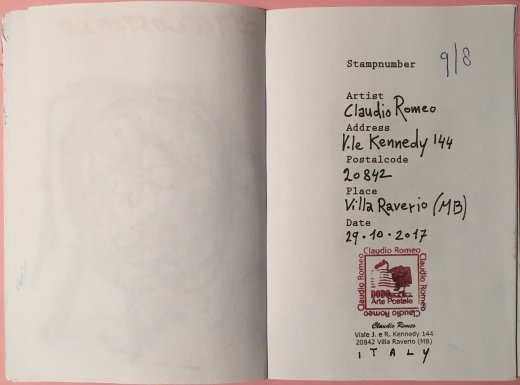 Stampnumber 9/8
Artist
Claudio Romeo
Address
V.le Kennedy 144
Postalcode
20842
Place
Villa Raverio (MB)
Date
29.10.2017
Claudio Romeo
Claudio Romeo
Claudio Romeo
DODO
Arte Postale
Claudio Romeo
Claudio Romeo
Viale J. e R. Kennedy 144
20842 Villa Raverio (MB)
ITALY